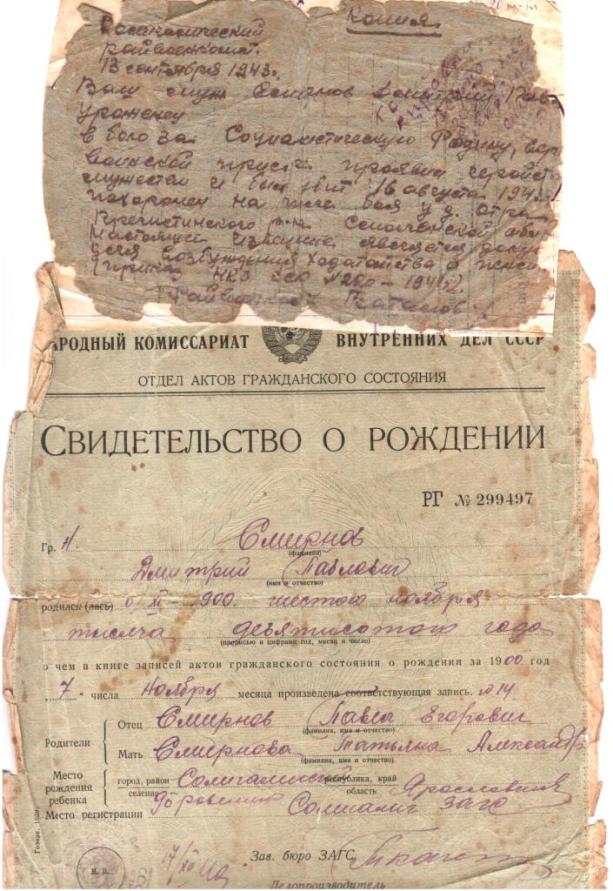 Копия
Солигаличский
райвоенкомат.
13 сентября 1943 г.
Ваш муж Смирнов Дмитрий Пав
уроженец
в бою за Социалистическую Родину, вер
воинской присяге проявив геройст
мужество и был убит 16 августа 194
похоронен на поле боя у д.
Пречистинского р-на Смоленской обл
Настоящее извещение является докум
для возбуждения ходатайства о пенси
(приказ НКО СССР № 220 - 1941г)
Райвоенком
НАРОДНЫЙ КОМИССАРИАТ ВНУТРЕННИХ ДЕЛ СССР
ОТДЕЛ АКТОВ ГРАЖДАНСКОГО СОСТОЯНИЯ
СВИДЕТЕЛЬСТВО О РОЖДЕНИИ
РГ № 299497
Гр. Н. Смирнов
(фамилия)
Дмитрий Павлович
(имя и отчество)
родился (лась) 6/XI-1900. шестого ноября
тысяча девятисотого года
(прописью и цифрами год, месяц и число)
о чем в книге записей актов гражданского состояния о рождении за 1900 год
7 числа ноября месяца произведена соответствующая запись № 14
Родители
Отец Смирнов Павел Егорович
(фамилия, имя и отчество)
Мать Смирнова Татьяна Александр
(фамилия, имя и отчество)
Место рождения ребенка
город, район Солигалич республика, край
селение область Ярославская
Место регистрации Солигалич ЗАГС
17/XI
Зав. бюро ЗАГС
М. П.
Делопроизводитель